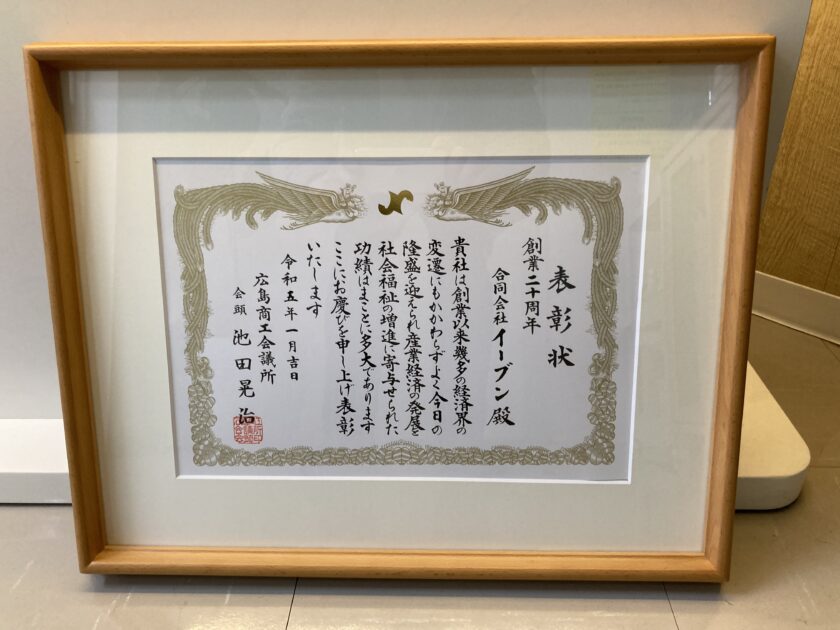 表彰状
創業二十周年
合同会社 イーブン 殿
貴社は創業以来幾多の経済界の
変遷にもかかわらずよく今日の
隆盛を迎えられ産業経済の発展と
社会福祉の増進に寄与せられた
功績はまことに多大であります
ここにお慶びを申し上げ表彰
いたします
令和五年一月吉日
広島商工会議所
会頭 池田晃治